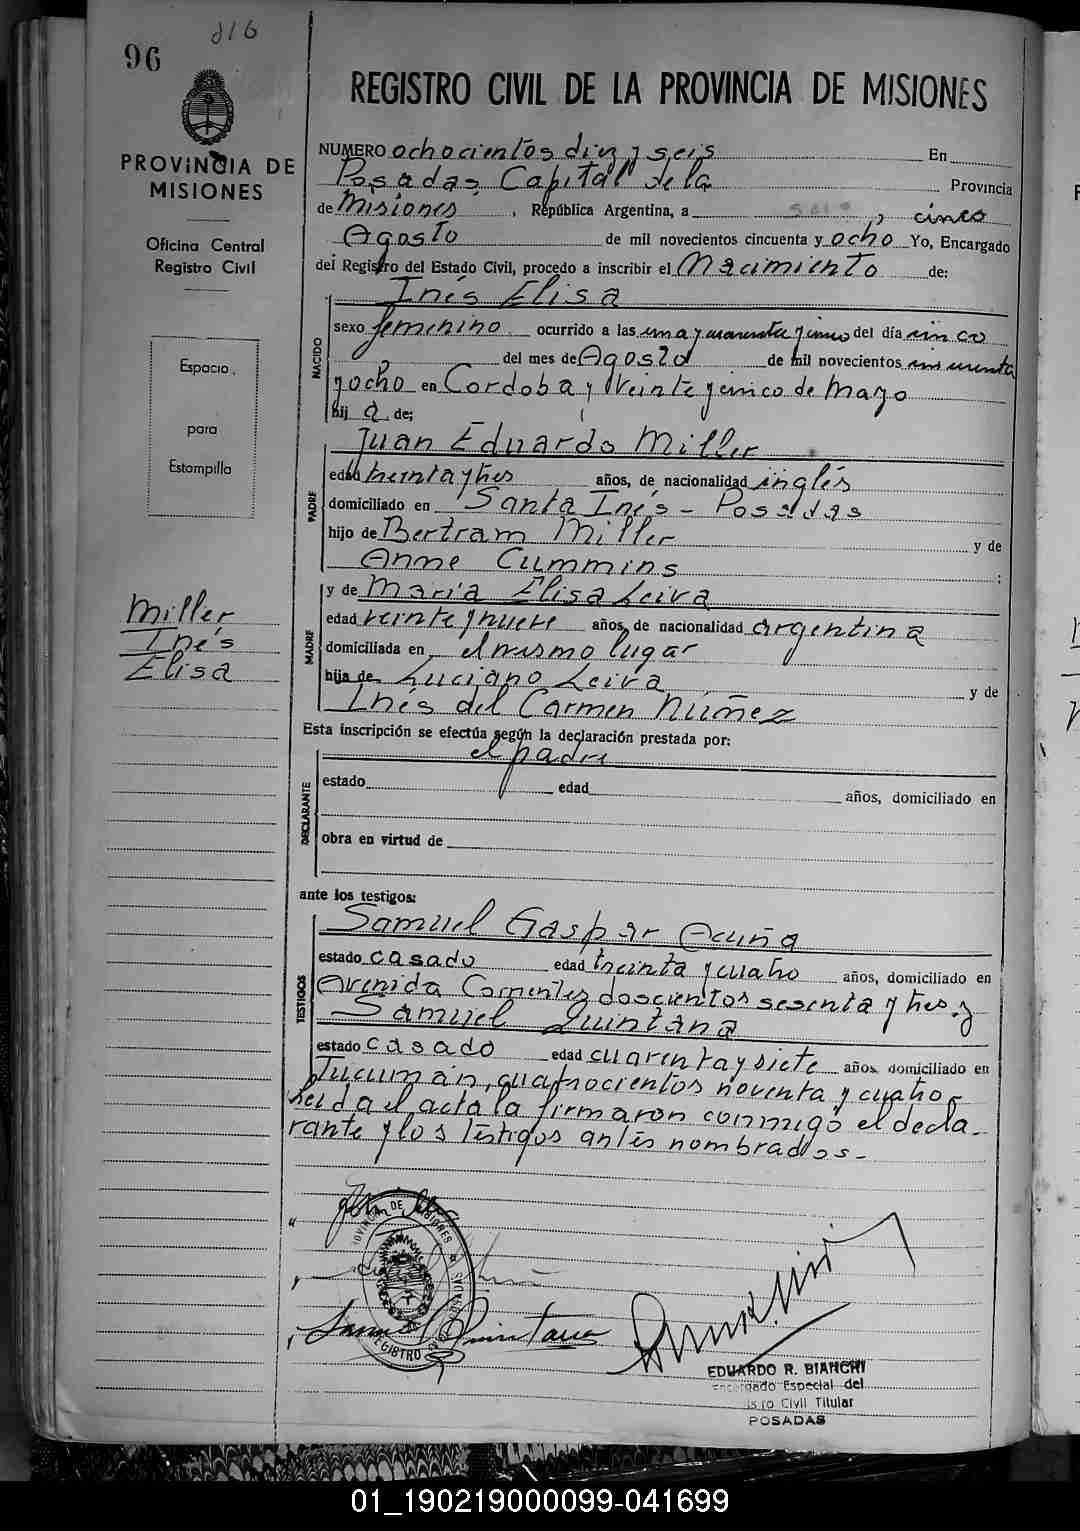 816
96
PROVINCIA DE
MISIONES
Oficina Central
Registro Civil
Espacio
para
Estampilla
Miller
Inés
Elisa
REGISTRO CIVIL DE LA PROVINCIA DE MISIONES
NUMERO ochocientos diez y seis En
Posadas Capital de la Provincia
de Misiones, República Argentina, a seis, cinco
Agosto de mil novecientos cincuenta y ocho Yo, Encargado
del Registro del Estado Civil, procedo a inscribir el Nacimiento de:
NACIDO
Inés Elisa
sexo femenino ocurrido a las una y cuarenta y cinco del día cinco
del mes de Agosto de mil novecientos cincuenta
y ocho en Cordoba y veinte y cinco de Mayo
hij a de;
PADRE
Juan Eduardo Miller
edad treinta y tres años, de nacionalidad inglés
domiciliado en Santa Inés - Posadas
hijo de Bertram Miller y de
Anne Cummins ;
MADRE
y de María Elisa Leiva
edad veinte y nueve años, de nacionalidad argentina
domiciliada en el mismo lugar
hija de Luciano Leiva y de
Inés del Carmen Núñez
Esta inscripción se efectúa según la declaración prestada por:
DECLARANTE
el padre
estado edad años, domiciliado en
obra en virtud de
ante los testigos:
TESTIGOS
Samuel Gaspar Acuña
estado casado edad treinta y cuatro años, domiciliado en
Avenida Corrientes doscientos sesenta y tres y
Samuel Quintana
estado casado edad cuarenta y siete años, domiciliado en
Tucumán, cuatrocientos noventa y cuatro-
Leida el acta la firmaron conmigo el decla-
rante y los testigos antes nombrados.-
PROVINCIA DE MISIONES
REGISTRO
Samuel Quintana
EDUARDO R. BIANCHI
Encargado Especial del
Registro Civil Titular
POSADAS
01_190219000099-041699